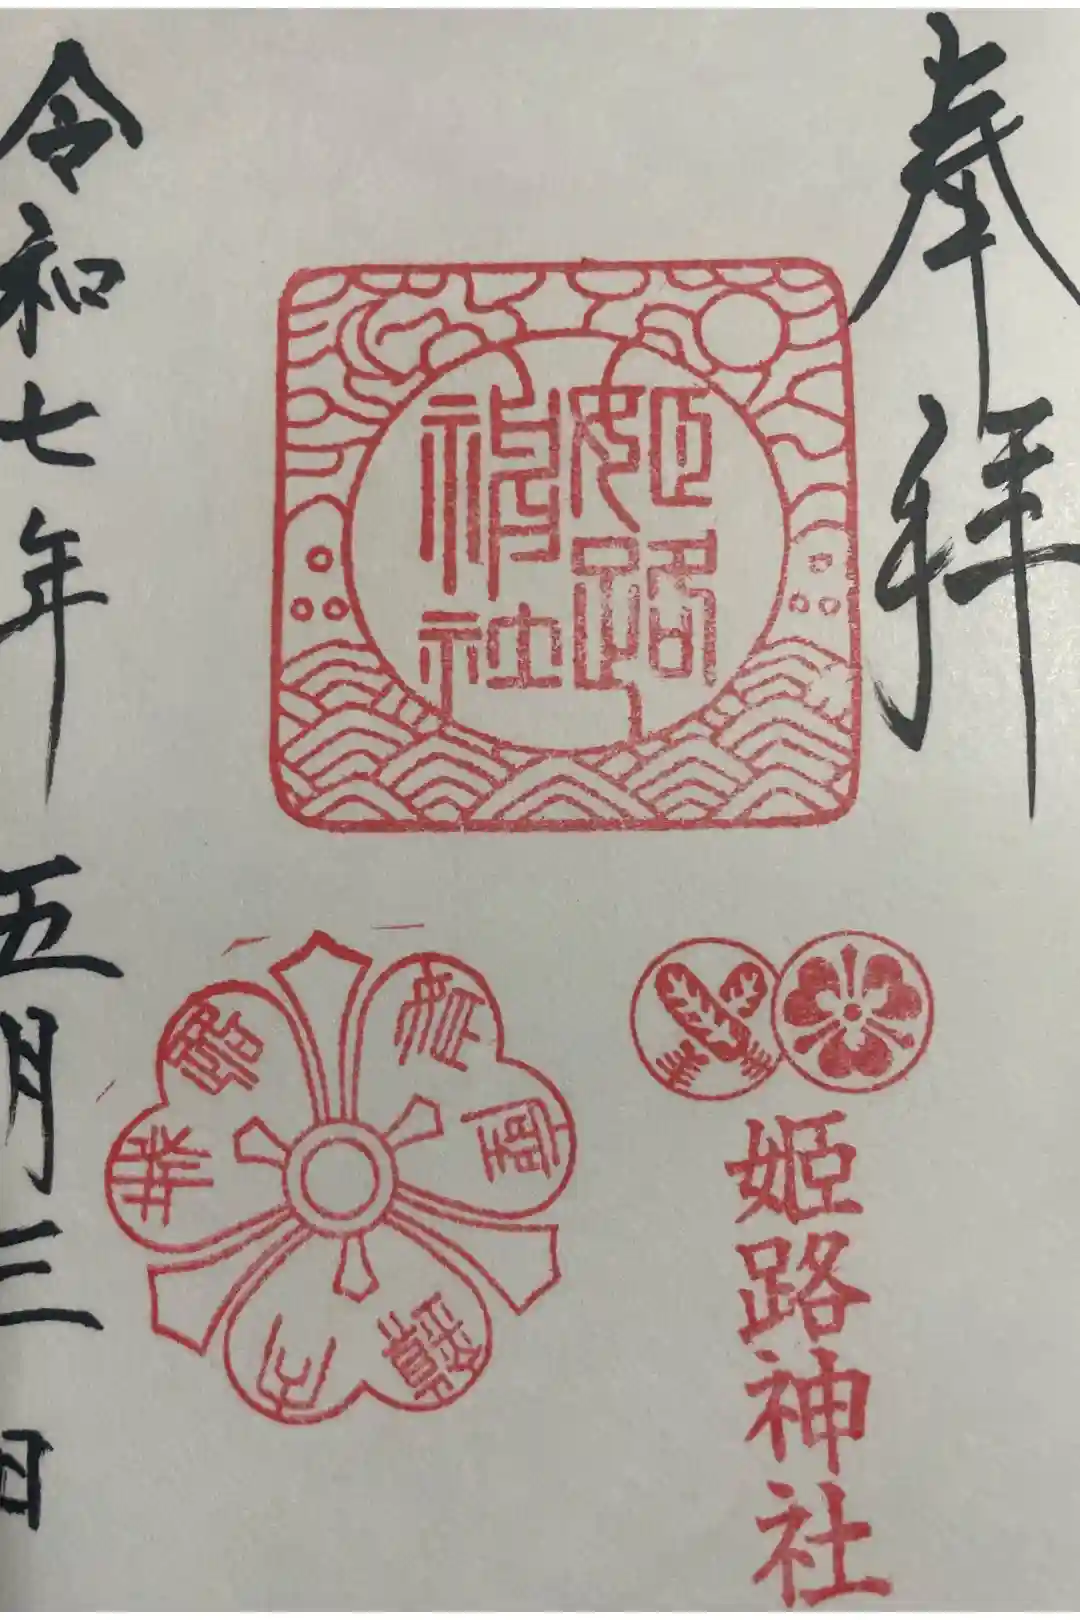 奉拝
姫路
神社
姫路神社
令和七年 五月三日